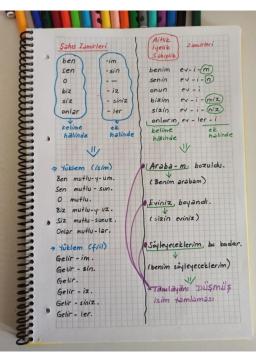 Şahıs Zamirleri
ben -im
sen -sin
o -
biz - iz
siz - siniz
onlar - ler
kelime hâlinde
ek hâlinde
→ Yüklem (isim)
Ben mutlu-y-um.
Sen mutlu-sun.
O mutlu.
Biz mutlu-y-uz.
Siz mutlu-sunuz.
Onlar mutlu-lar.
→ Yüklem (fiil)
Gelir-im.
Gelir-sin.
Gelir.
Gelir-iz.
Gelir-siniz.
Gelir-ler.
Aitlik
İyelik
Sahiplik
Zamirleri
benim ev-i-m
senin ev-i-n
onun ev-i
bizim ev-i-miz
sizin ev-i-niz
onların ev-ler-i
kelime hâlinde
ek hâlinde
Araba-m bozuldu.
(Benim arabam)
Eviniz boyandı.
(sizin eviniz)
Söyleyeceklerim bu kadar.
(benim söyleyeceklerim)
Tamlayanı DÜŞMÜŞ
isim tamlaması